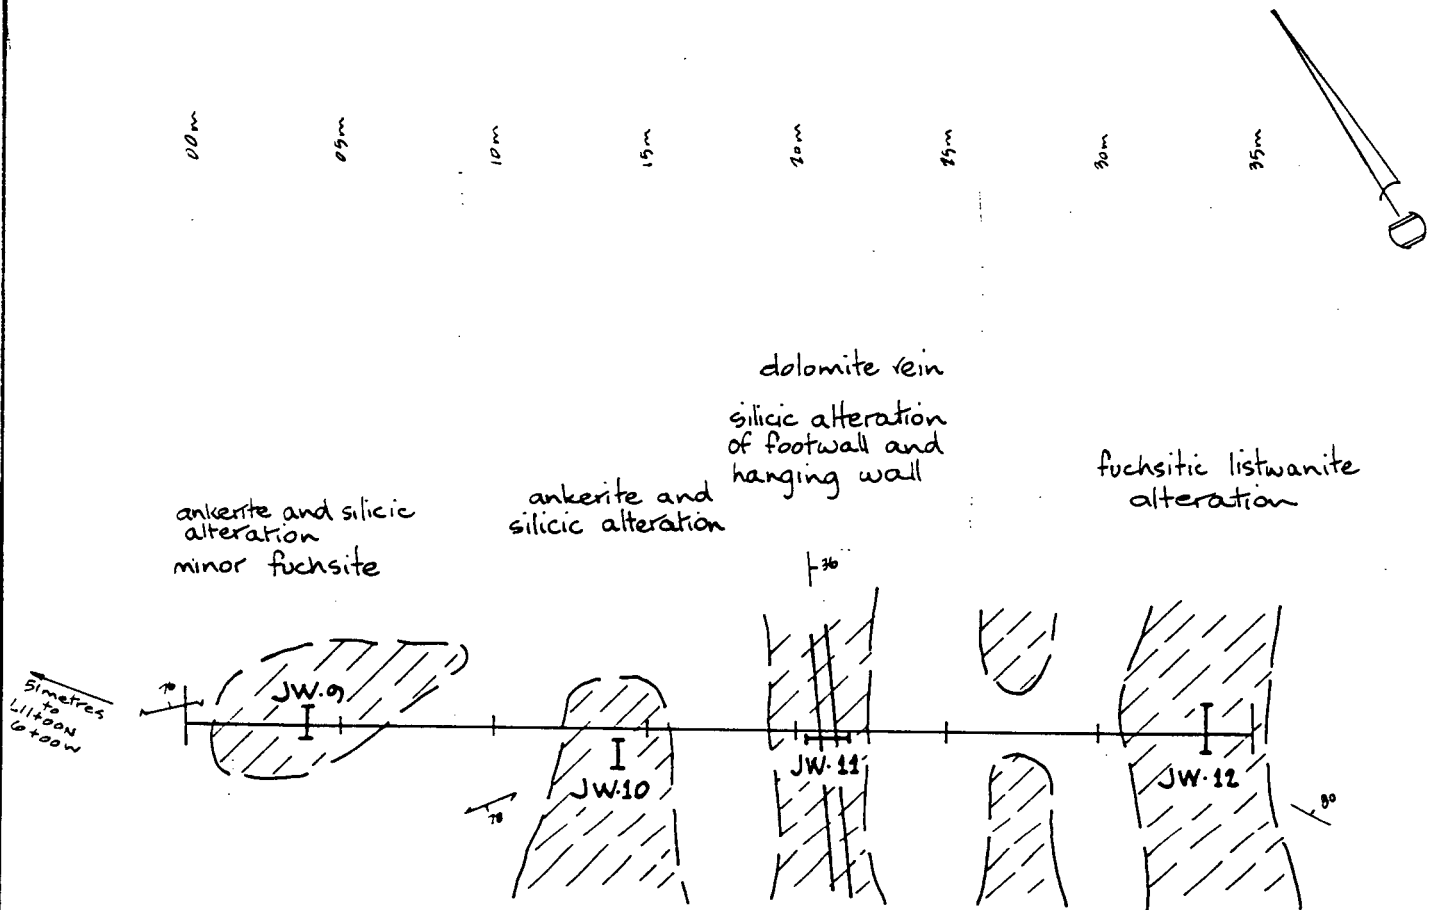 00m
05m
10m
15m
20m
25m
30m
35m
dolomite vein
silicic alteration
of footwall and
hanging wall
fuchsitic listwanite
alteration
ankerite and
silicic alteration
ankerite and silicic
alteration
minor fuchsite
36
51 metres
to
L11+00N
6+00W
JW.9
JW.10
78
JW.11
JW.12
80